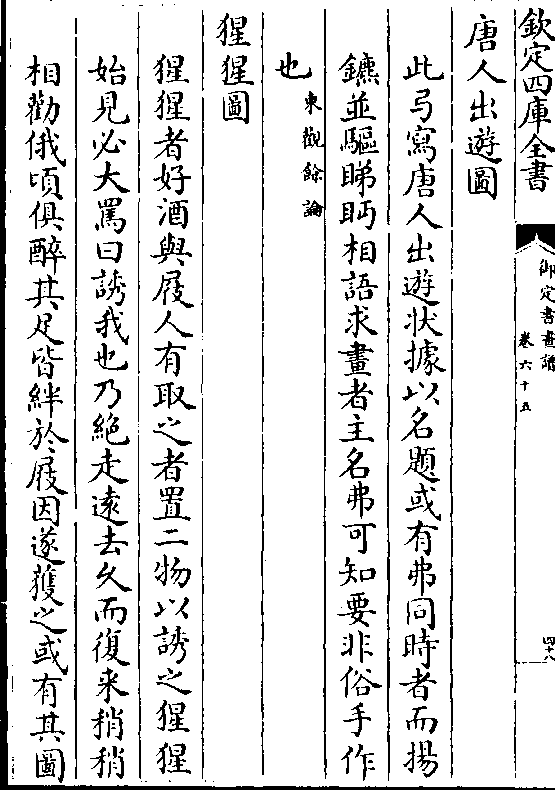 欽定四庫全書
御定書畫譜
卷六十五
四十八
唐人出遊圖
此弓寫唐人出遊狀據以名題或有弗同時者而揚
鑣並驅睇眄相語求畫者主名弗可知要非俗手作
也東觀餘論
猩猩圖
猩猩者好酒與屐人有取之者置二物以誘之猩猩
始見必大罵曰誘我也乃絕走遠去久而復来稍稍
相勸俄頃俱醉其足皆絆於屐因遂獲之或有其圖